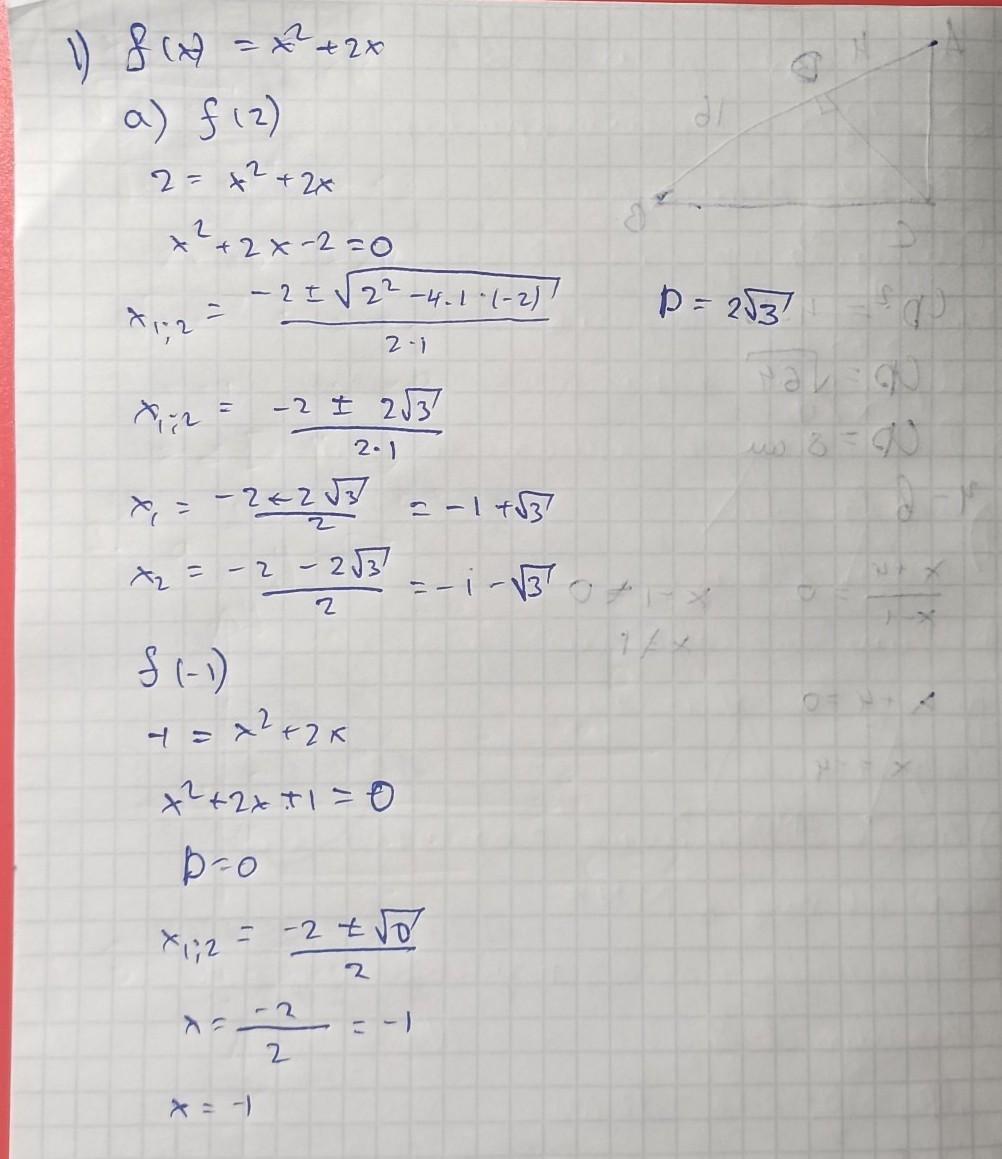 1) f(x) = x² + 2x
a) f(2)
2 = x² + 2x
x² + 2x - 2 = 0
x₁;₂ = (-2 ± √(2² - 4·1·(-2)))/(2·1) D = 2√3
x₁;₂ = (-2 ± 2√3)/(2·1)
x₁ = (-2 + 2√3)/2 = -1 + √3
x₂ = (-2 - 2√3)/2 = -1 - √3
f(-1)
-1 = x² + 2x
x² + 2x + 1 = 0
D = 0
x₁;₂ = (-2 ± √0)/2
x = (-2)/2 = -1
x = -1